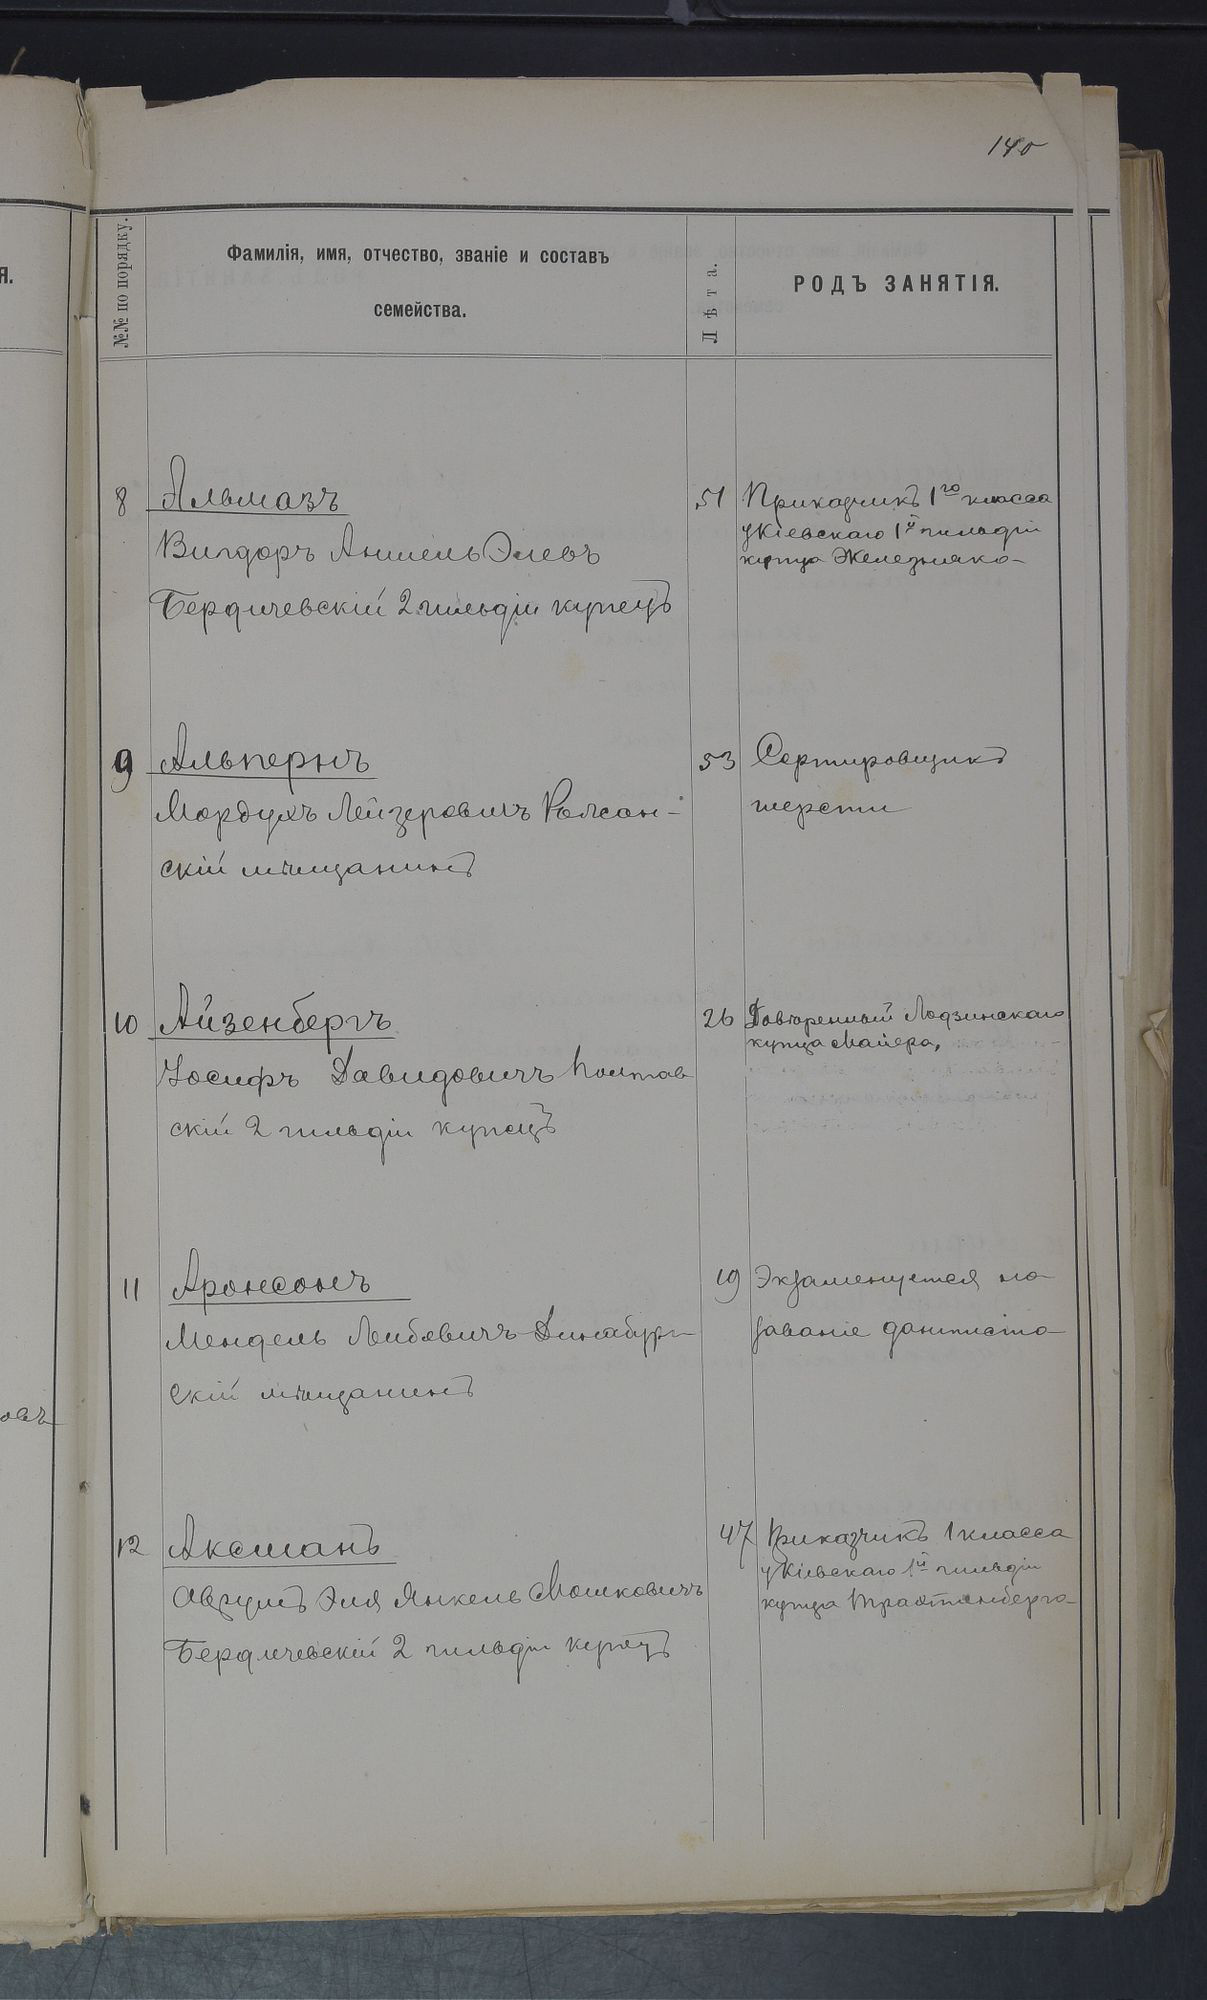 140
№№ по порядку.
Фамилія, имя, отчество, званіе и составъ
семейства.
Лѣта.
РОДЪ ЗАНЯТІЯ.
Я.
8 Альмазъ 51 Приказчикъ 1го класса
Вигдоръ Аншель Элевъ у Кіевскаго 1й гильдіи
купца Железняка
Бердичевскій 2 гильдіи купецъ
9 Альпернъ 53 Сортировщикъ
Мордухъ Лейзеровичъ Рожан-
шерсти
скій мѣщанинъ
10 Айзенбергъ 26 Довѣренный Лодзинскаго
купца Майера,
Іосифъ Давидовичъ Полтав
скій 2 гильдіи купецъ
11 Аронсонъ 19 Экзаменуется на
Мендель Лейбовичъ Динабург-
званіе дантиста
скій мѣщанинъ
овъ
12 Аксманъ 47 Приказчикъ 1 класса
у Кіевскаго 1й гильдіи
Аврумъ Эля Янкель Мошковичъ
купца Трахтенберга
Бердичевскій 2 гильдіи купецъ